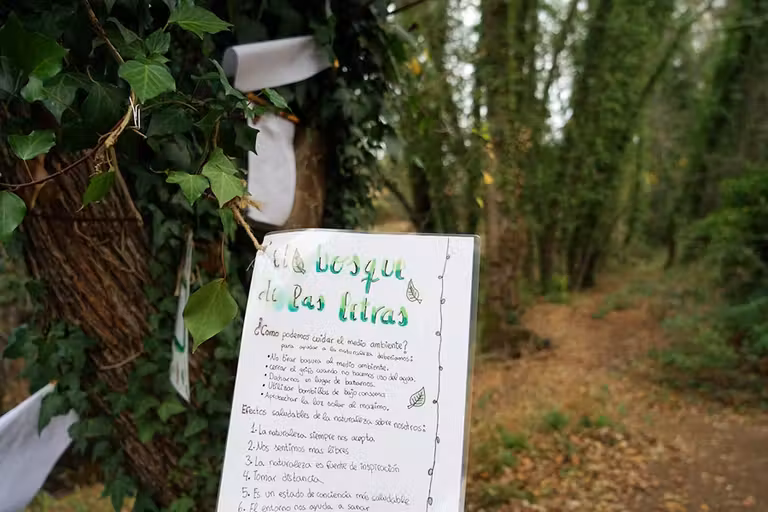 el bosque
de las letras
¿Como podemos cuidar el medio ambiente?
para ayudar a la naturaleza deberiamos:
• No tirar basura al medio ambiente.
• cerrar el grifo cuando no hacemos uso del agua.
• Ducharnos en lugar de bañarnos.
• Utilizar bombillas de bajo consumo
• Aprovechar la luz solar al maximo.
Efectos saludables de la naturaleza sobre nosotros:
1- La naturaleza siempre nos acepta
2- Nos sentimos mas libres
3- La naturaleza es fuente de inspiración
4- Tomar distancia
5- Es un estado de conciencia más saludable
6- El entorno nos ayuda a sanar